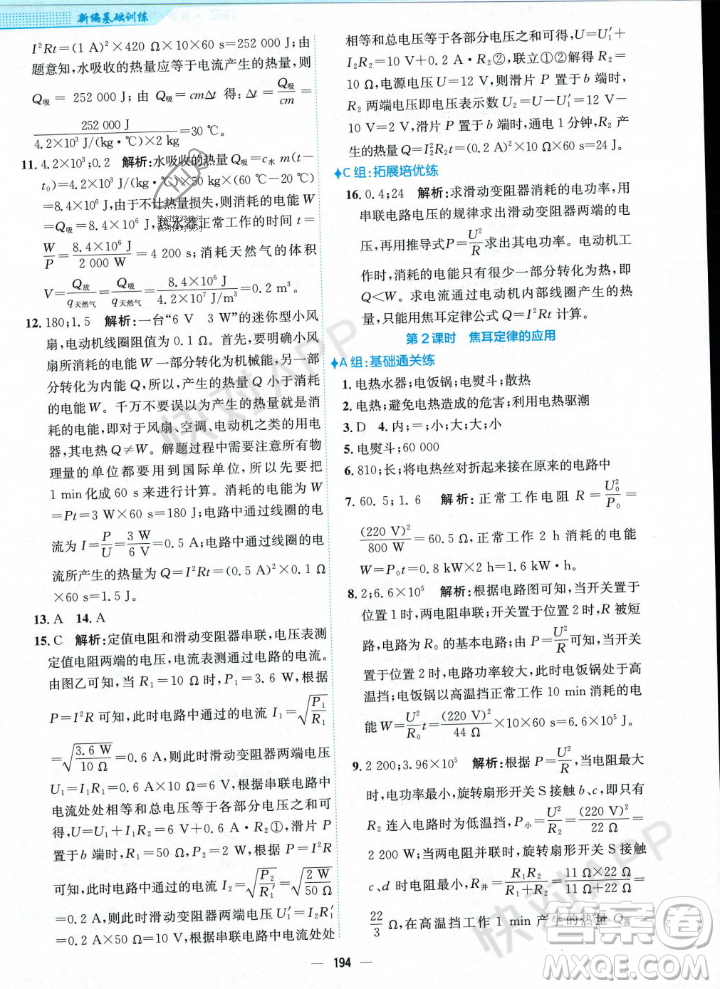 新编基础训练
I²Rt=(1 A)²×420 Ω×10×60 s=252 000 J;由
题意知，水吸收的热量应等于电流产生的热量，则
Q吸 = 252 000 J; 由 Q吸 = cmΔt 得: Δt = Q吸/cm =
252 000 J/(4.2×10³ J/(kg·℃)×2 kg)=30 ℃。
11. 4.2×10³;0.2 解析:水吸收的热量 Q吸=c水 m(t-
t₀)=8.4×10⁶ J,由于不计热量损失,则消耗的电能
W=Q吸=8.4×10⁶ J,热水器正常工作的时间 t=
W/P=8.4×10⁶ J/2 000 W=4 200 s;消耗天然气的体积
V=Q放/q天然气=Q吸/q天然气=8.4×10⁶ J/4.2×10⁷ J/m³=0.2 m³。
12. 180;1.5 解析:一台“6 V 3 W”的迷你型小风
扇,电动机线圈阻值为 0.1 Ω。首先,要明确小风
扇所消耗的电能 W 一部分转化为机械能,另一部
分转化为内能 Q,所以,产生的热量总是小于消耗
的电能 W。千万不要误以为产生的热量就是消
耗的电能,这是因为对于风扇、空调、电动机之类的用电
器,其电热 Q≠W。解题过程中,要特别注意所有物
理量的单位都要用到国际单位,所以,要将时间
1 min 化成 60 s 来进行计算。消耗的电能为 W
=Pt=3 W×60 s=180 J;电路中通过的电
流为 I=P/U=3 W/6 V=0.5 A;电路中电流通过线圈
电流所产生的热量为 Q=I²Rt=(0.5 A)²×0.1 Ω
×60 s=1.5 J。
13. A 14. A
15. C 解析:定值电阻和滑动变阻器串联,电压表测
定值电阻两端的电压,电流表测电路中的电流。
由图乙可知,当 R₁=10 Ω 时,P₁=3.6 W,根据
P=I²R 可知,此时电路中通过的电流 I₁=√(P₁/R₁)
=√(3.6 W/10 Ω)=0.6 A,则此时滑动变阻器两端电压
U₁=I₁R₁=0.6 A×10 Ω=6 V,根据串联电路中
电流处处相等和总电压等于各部分电压之和可
得,U=U₁+I₁R₂=6 V+0.6 A×R₂①;滑片 P
置于 b 端时,滑动变阻器接入电阻最大,根据 P=I²R
可知,此时电路中通过的电流 I₂=√(P₂/R₁′)=√(2 W/50 Ω)
=0.2 A,则此时滑动变阻器两端电压 U₁′=I₂R₁′=
0.2 A×50 Ω=10 V,根据串联电路中电流处处
相等和总电压等于各部分电压之和可得,U=U₁′+
I₂R₂=10 V+0.2 A×R₂②;联立①②解得 R₂=
10 Ω,电源电压 U=12 V。滑片 P 置于 b 端时,
R₂ 两端电压即电压表示数 U₂=U-U₁′=12 V-
10 V=2 V。滑片 P 置于 b 端时,通电 1 分钟,R₂
产生的热量为 Q=I₂²R₂t=(0.2 A)²×10 Ω×60 s=24 J。
C 组:拓展培优练
16. 0.4;24 解析:求滑动变阻器消耗的电功率,用
串联电路电压的规律求出滑动变阻器两端的电
压,再用推导式 P=U²/R 求出电功率。电动机工作
时,消耗的电能只有一部分转化为热量,因此,
Q<W。求电流通过电动机内部线圈产生的热
量,只能用焦耳定律公式 Q=I²Rt 计算。
第 2 课时 焦耳定律的应用
A 组:基础通关练
1. 电热水器;电饭锅;电熨斗;散热
2. 电热;避免电热造成的危害;利用电热驱潮
3. D 4. 内;=;小;大;=;小;大
5. 电熨斗;60 000
6. 810;长;将电热丝对折起来接在原来的电路中
7. 60.5;1.6 解析:正常工作电阻 R=U₀²/P₀=
(220 V)²/800 W=60.5 Ω,正常工作 2 h 消耗的电能
W=P₀t=0.8 kW×2 h=1.6 kW·h。
8. 2;6.6×10⁵ 解析:根据电路图可知,当开关置于
位置 1 时,两电阻串联;当开关置于位置 2 时,R 被短
路,电路为 R₀ 的简单电路。由 P=U²/R 可知,当开关
置于位置 2 时,电路功率较大,此时电饭锅处于
高温挡。电饭锅在高温挡工作 10 min 消耗的电
能 W=U²/R₀ t=(220 V)²/44 Ω×10×60 s=6.6×10⁵ J。
9. 2 200;3.96×10⁵ 解析:根据电功率 P=U²/R 可
知,电阻越大,功率越小,旋转扇形开关 S 接触点
b、c,即只有 R₂ 连入电路时为低温挡,P小=U²/R₂=(220 V)²/22 Ω=
2 200 W;当旋转扇形开关 S 接触点 c、d 时,两电
阻并联,为高温挡,R并=R₁R₂/(R₁+R₂)=11 Ω×22 Ω/(11 Ω+22 Ω)=
22/3 Ω,在高温挡工作 1 min 产生的热量 Q放=
194
快对APP
快对APP
答案圈
MXQE.COM